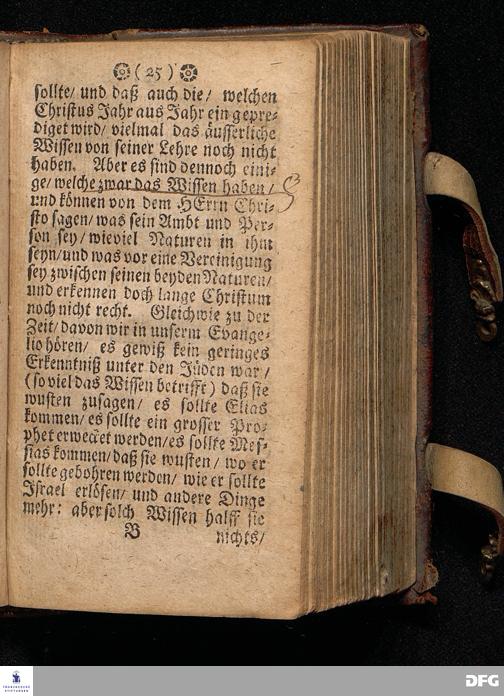 ❁ ( 25 ) ❁
sollte/ und daß auch die/ welchen
Christus Jahr aus Jahr ein gepre-
diget wird/ vielmal das äusserliche
Wissen von seiner Lehre noch nicht
haben. Aber es sind dennoch eini-
ge/ welche zwar das Wissen haben/
und können von dem HErrn Chri-
sto sagen/ was sein Ambt und Per-
son sey/ wieviel Naturen in ihm
seyn/und was vor eine Vereinigung
sey zwischen seinen beyden Naturen/
und erkennen doch lange Christum
noch nicht recht. Gleichwie zu der
Zeit/ davon wir in unserm Evange-
lio hören/ es gewiß kein geringes
Erkenntniß unter den Jüden war/
(so viel das Wissen betrifft) daß sie
wusten zusagen/ es sollte Elias
kommen/ es sollte ein grosser Pro-
phet erwecket werden/es sollte Mes-
sias kommen/ daß sie wusten/ wo er
sollte gebohren werden/ wie er sollte
Israel erlösen/ und andere Dinge
mehr: aber solch Wissen halff sie
B nichts/
FRANCKESCHE
STIFTUNGEN
DFG